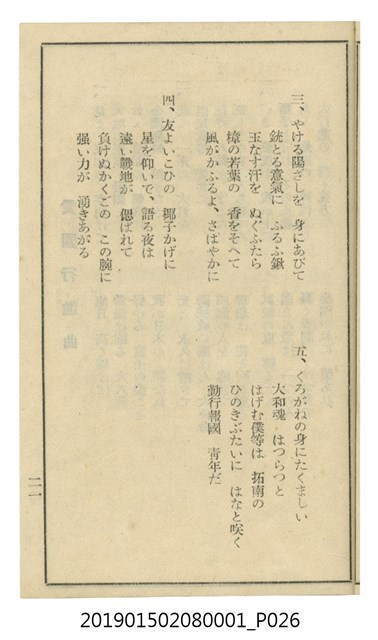 三、やける陽ざしを　身にあびて
銃とる意氣に　ふるふ鍬
玉なす汗を　ぬぐふたら
樟の若葉の　香をそへて
風がかふるよ、さはやかに
四、友よいこひの　椰子かげに
星を仰いで、語る夜は
遠い戰地が　偲ばれて
負けぬかくごの　この腕に
强い力が　湧きあがる
五、くろがねの身にたくましい
大和魂　はつらつと
はげむ僕等は　拓南の
ひのきぶたいに　はなと咲く
勤行報國　靑年だ
二一
201901502080001_P026